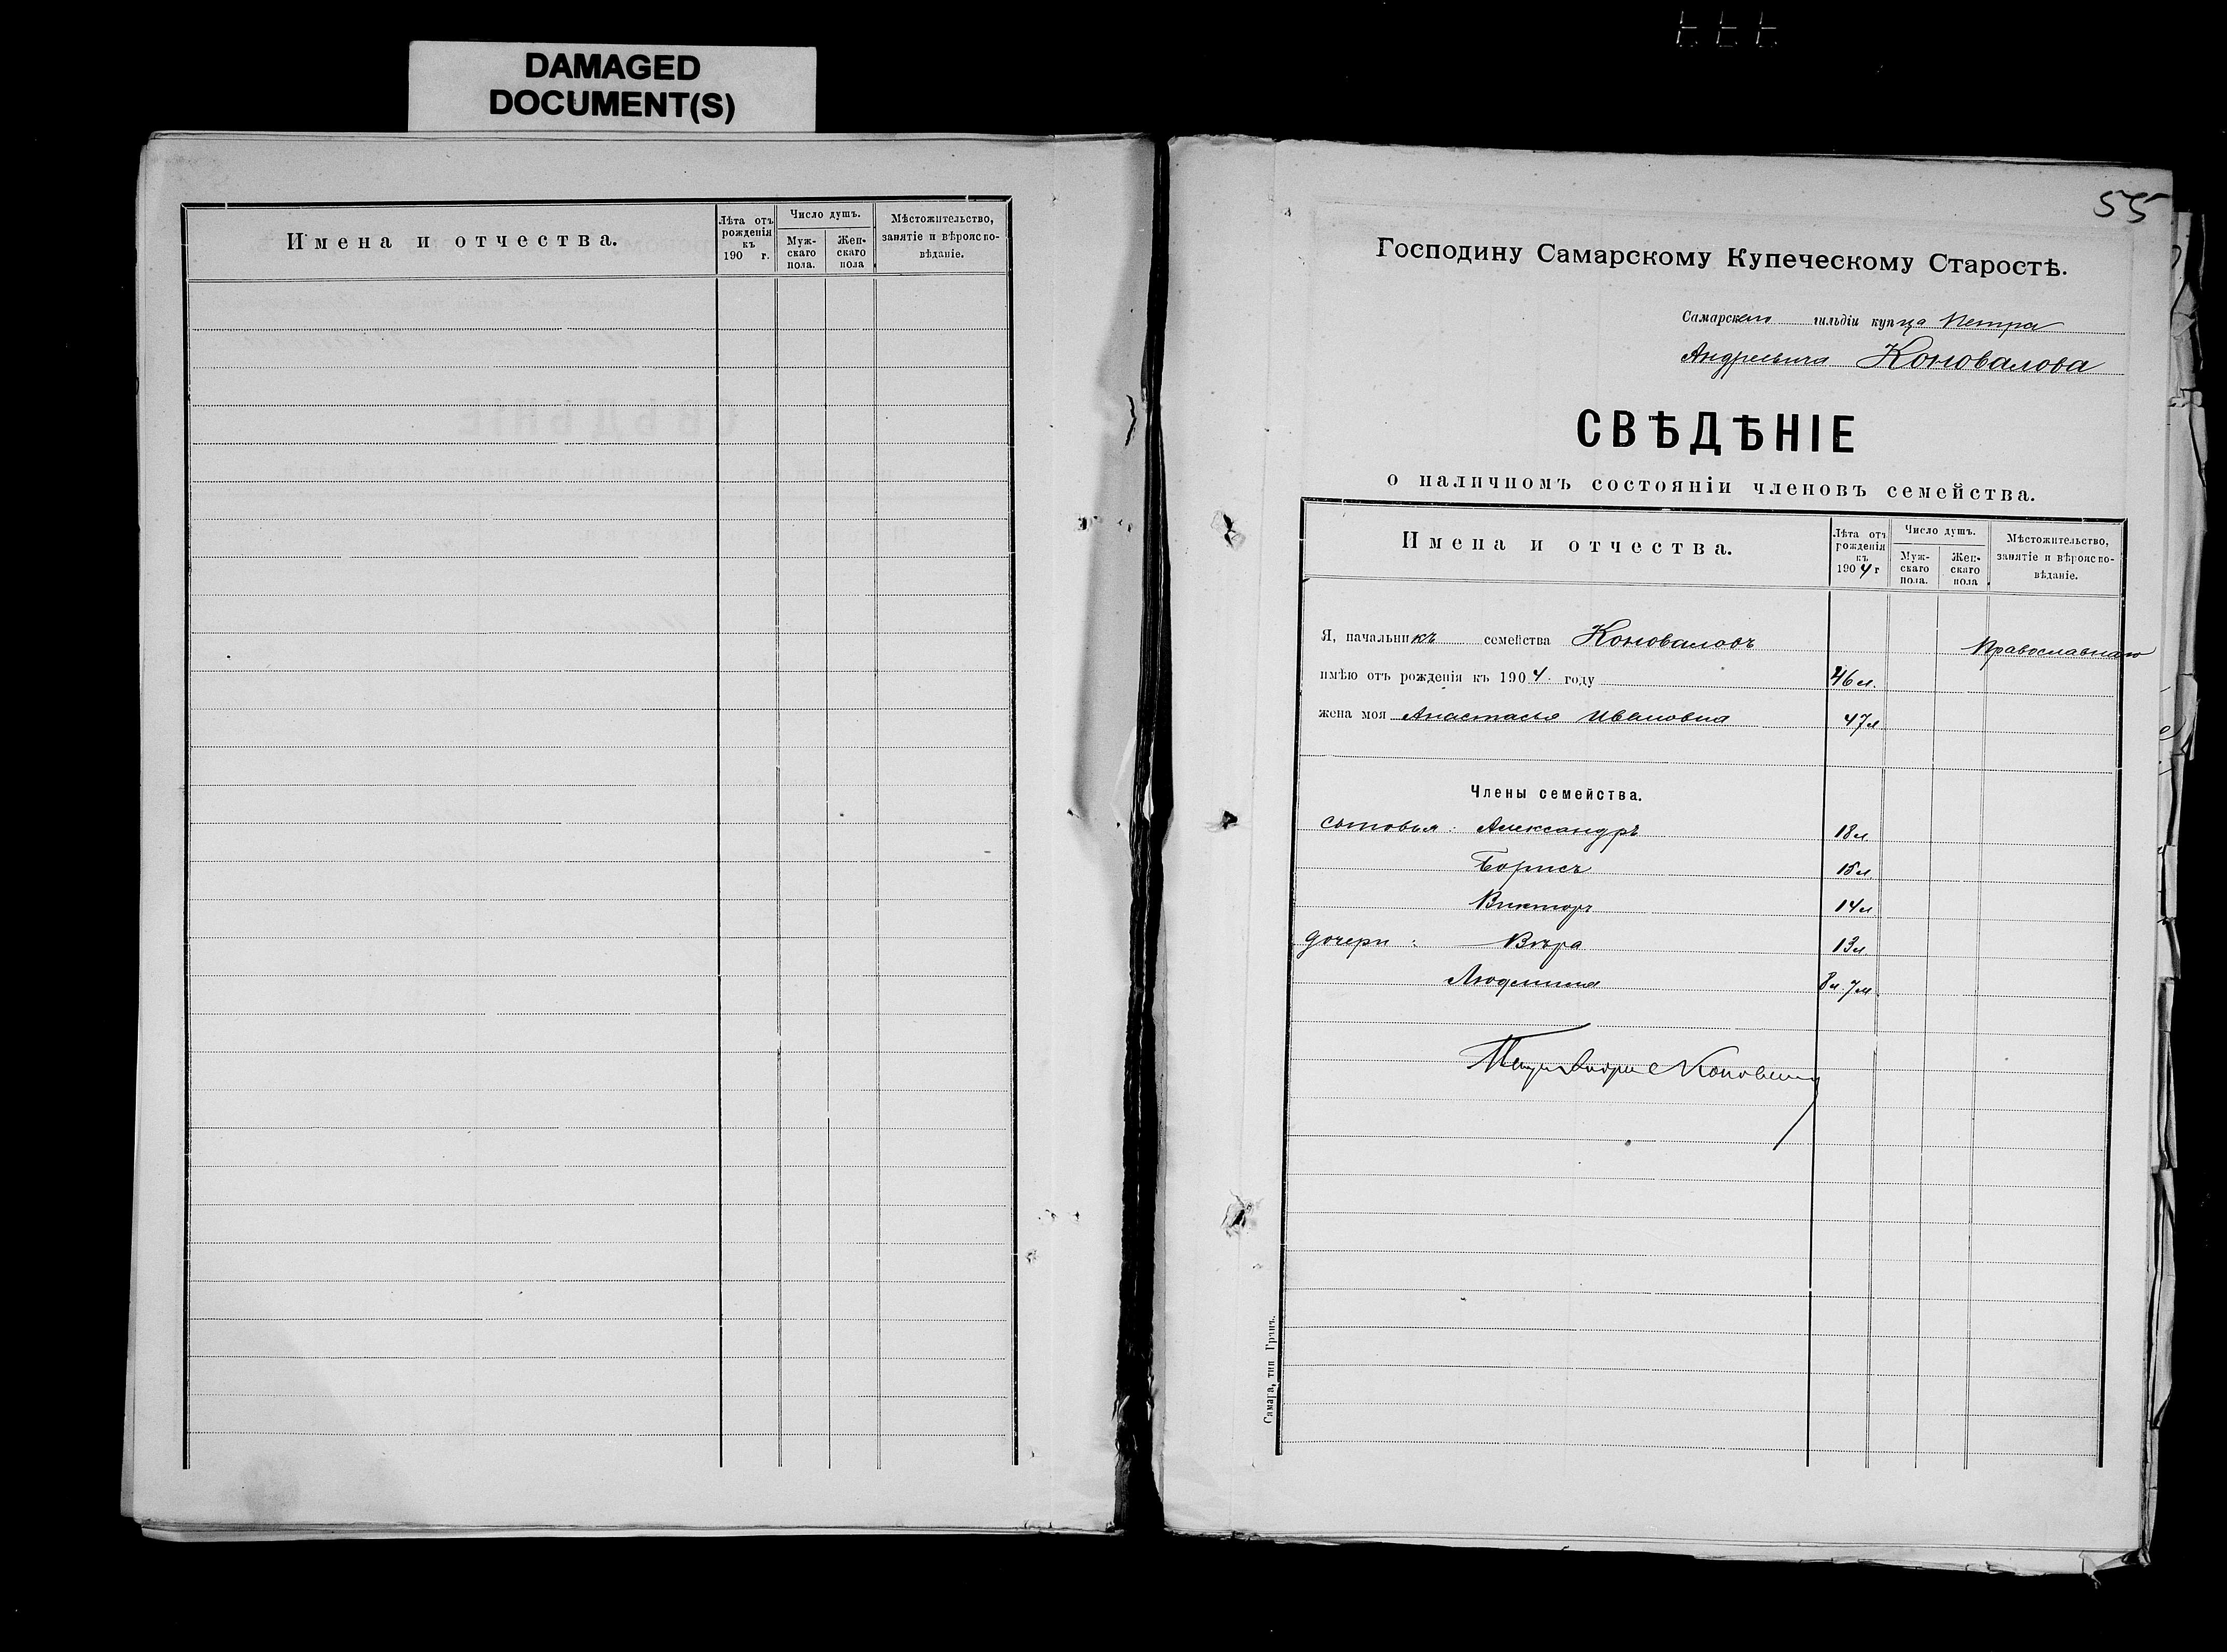 DAMAGED
DOCUMENT(S)
Имена и отчества.
Лѣта отъ рожденія къ 190 г.
Число душъ.
Муж-скаго пола.
Жен-скаго пола
Мѣстожительство, занятіе и вѣроиспо-вѣданіе.
55
Господину Самарскому Купеческому Старостѣ.
Самарскаго гильдіи купца Петра
Андреевича Коновалова
СВѢДѢНІЕ
о наличномъ состояніи членовъ семейства.
Имена и отчества.
Лѣта отъ рожденія къ 1904 г
Число душъ.
Муж-скаго пола.
Жен-скаго пола
Мѣстожительство, занятіе и вѣроиспо-вѣданіе.
Я, начальникъ семейства Коноваловъ Православнаго
имѣю отъ рожденія къ 1904 году 46 л.
жена моя Анастасья Ивановна 47 л
Члены семейства.
сыновья: Александръ 18 л
Борисъ 15 л
Викторъ 14 л
дочери: Вѣра 13 л.
Людмила 8 л 7 м
Петръ Андрее Коновалов
Самара, тип. Гранъ.